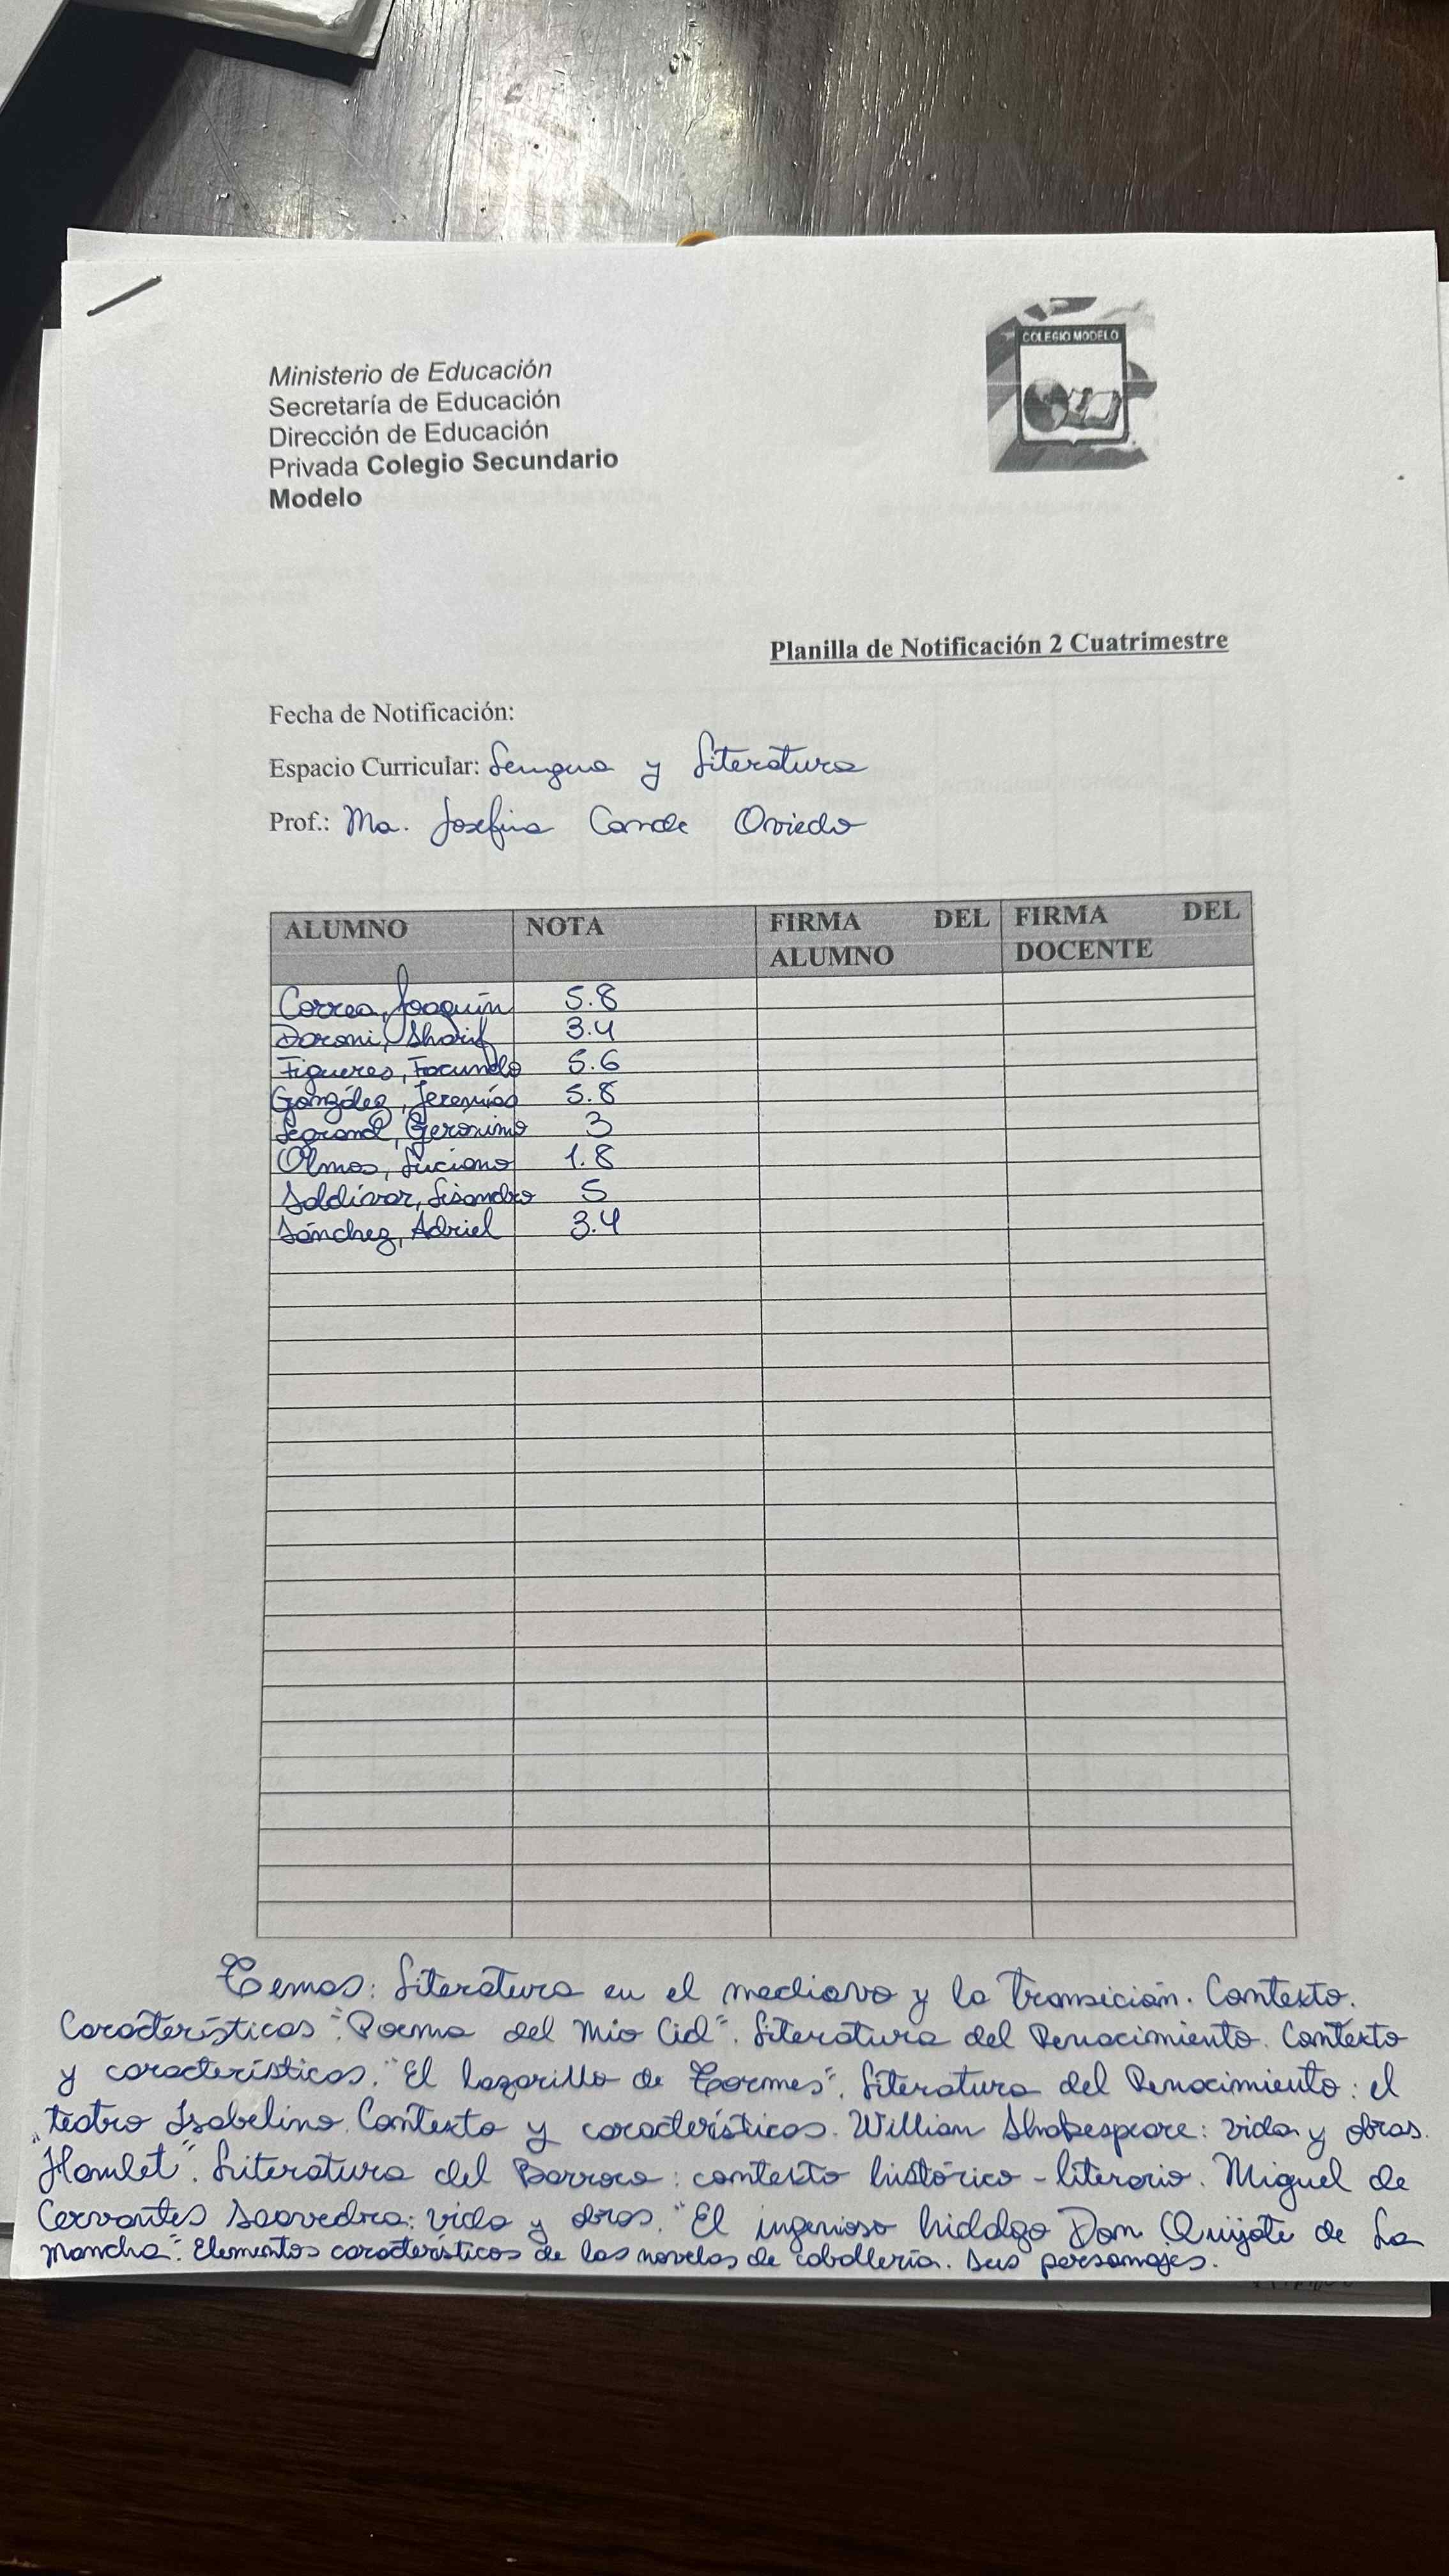 COLEGIO MODELO
Ministerio de Educación
Secretaría de Educación
Dirección de Educación
Privada Colegio Secundario
Modelo
Planilla de Notificación 2 Cuatrimestre
Fecha de Notificación:
Espacio Curricular: Lengua y Literatura
Prof.: Ma. Josefina Conde Oviedo
ALUMNO NOTA FIRMA DEL ALUMNO FIRMA DEL DOCENTE
Correa, Joaquín 5.8
Daroni, Sharif 3.4
Figueres, Facundo 5.6
González, Jeremías 5.8
Legrand, Geronimo 3
Olmos, Luciano 1.8
Saldívar, Lisandro 5
Sánchez, Adriel 3.4
Temas: Literatura en el medioevo y la transición. Contexto.
Características "Poema del Mio Cid". Literatura del Renacimiento. Contexto
y características. "El lazarillo de Tormes". Literatura del Renacimiento: el
teatro Isabelino. Contexto y características. Willian Shakespeare: vida y obras.
"Hamlet". Literatura del Barroco: contexto histórico - literario. Miguel de
Cervantes Saavedra: vida y obras. "El ingenioso hidalgo Don Quijote de La
Mancha". Elementos característicos de las novelas de caballería. Sus personajes.